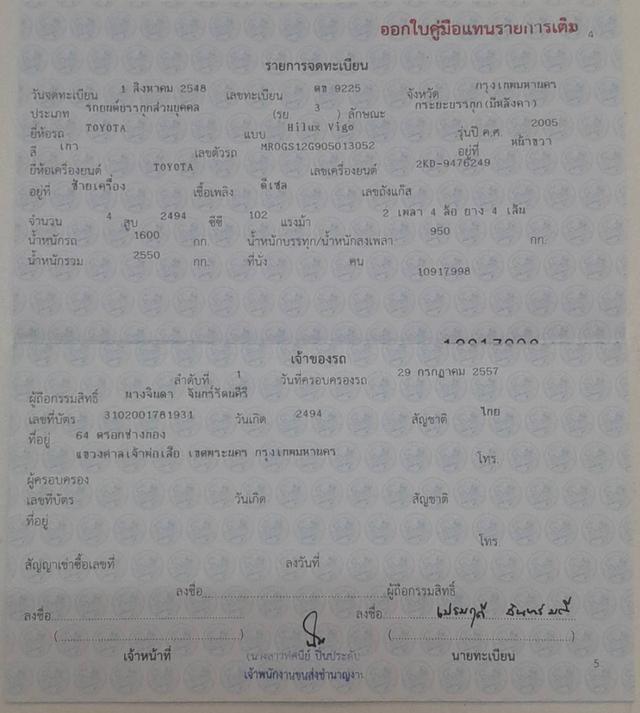 ออกใบคู่มือแทนรายการเดิม 4
รายการจดทะเบียน
วันจดทะเบียน 1 สิงหาคม 2548 เลขทะเบียน 9225 จังหวัด กรุงเทพมหานคร
ประเภท รถยนต์บรรทุกส่วนบุคคล (รย. 3 ) ลักษณะ กระบะบรรทุก(มีหลังคา)
ยี่ห้อรถ TOYOTA แบบ Hilux Vigo รุ่นปี ค.ศ. 2005
สี เทา เลขตัวรถ MR0GS12G905013052 อยู่ที่ หน้าขวา
ยี่ห้อเครื่องยนต์ TOYOTA เลขเครื่องยนต์ 2KD-9476249
อยู่ที่ ซ้ายเครื่อง เชื้อเพลิง ดีเซล เลขถังแก๊ส
จำนวน 4 สูบ 2494 ซีซี 102 แรงม้า 2 เพลา 4 ล้อ ยาง 4 เส้น
น้ำหนักรถ 1600 กก. น้ำหนักบรรทุก/น้ำหนักลงเพลา 950 กก.
น้ำหนักรวม 2550 กก. ที่นั่ง คน
10917998
เจ้าของรถ
ลำดับที่ 1 วันที่ครอบครองรถ 29 กรกฎาคม 2557
ผู้ถือกรรมสิทธิ์ นางจินดา จันทร์รัตนศิริ
เลขที่บัตร 3102001781931 วันเกิด 2494 สัญชาติ ไทย
ที่อยู่ 64 ตรอกช่างทอง
แขวงศาลเจ้าพ่อเสือ เขตพระนคร กรุงเทพมหานคร โทร.
ผู้ครอบครอง
เลขที่บัตร วันเกิด สัญชาติ
ที่อยู่
โทร.
สัญญาเช่าซื้อเลขที่ ลงวันที่
ลงชื่อ ผู้ถือกรรมสิทธิ์
ลงชื่อ ลงชื่อ
(....................) (....................)
เจ้าหน้าที่ นายทะเบียน
เจ้าพนักงานขนส่งชำนาญงาน
5